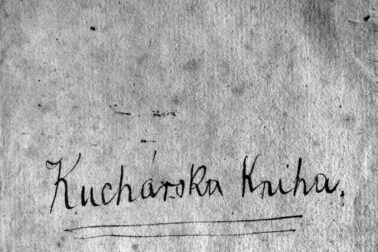 Kuchárska Kniha.